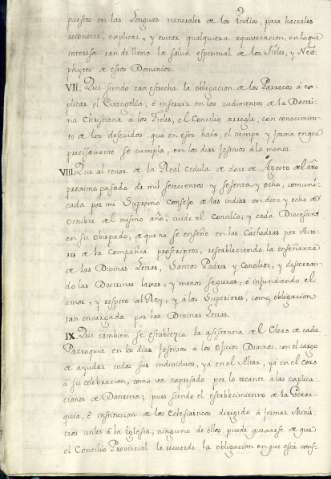 puestos en las Lenguas generales de los Yndias, para hacerles
reconocer, explicar, y evitar qualquiera equivocacion, en lo que
interesa tan de lleno la salud espiritual de los Fieles, y Neo-
phytos de estos Dominios.
VII. Que siendo tan estrecha la obligacion de los Parrocos à ex-
plicar el Evangelio, è instruir en los rudimentos de la Doctri-
na Christiana à los Fieles, el Concilio arregle, con conocimien-
to de los descuidos que en esto haia, el tiempo y forma en que
precisamente se cumpla, en los dias festivos à lo menos.
VIII. Que al tenor de la Real Cedula de doce de Agosto del año
proximo pasado de mil setecientos y sesenta y ocho, comuni-
cada por mi Supremo Consejo de las Indias en diez y ocho de
Octubre del mismo año, cuide el Concilio, y cada Diocesano
en su Obispado, de que no se enseñe en las Cathedras por Auto-
res de la Compañia proscriptos, restableciendo la enseñanza
de las Divinas Letras, Santos Padres y Concilios, y desterran-
do las Doctrinas laxas, y menos seguras, è infundiendo el
amor, y respeto al Rey, y a los Superiores, como obligacion
tan encargada por las Divinas Letras.
IX. Que tambien se establezca la asistencia de el Clero de cada
Parroquia en los dias festivos à los Oficios Divinos, con el cargo
de ayudar todos sus individuos, ya en el Altar, ya en el Coro
à su celebracion, como en lo tocante à las explica-
ciones de Doctrina; pues siendo el establecimiento de la Gerar-
quia, è institucion de los Eclesiasticos dirigida à formar Minis-
tros utiles à la Iglesia, ninguno de ellos puede quexarse de que
el Concilio Provincial le recuerde la obligacion en que està cons-